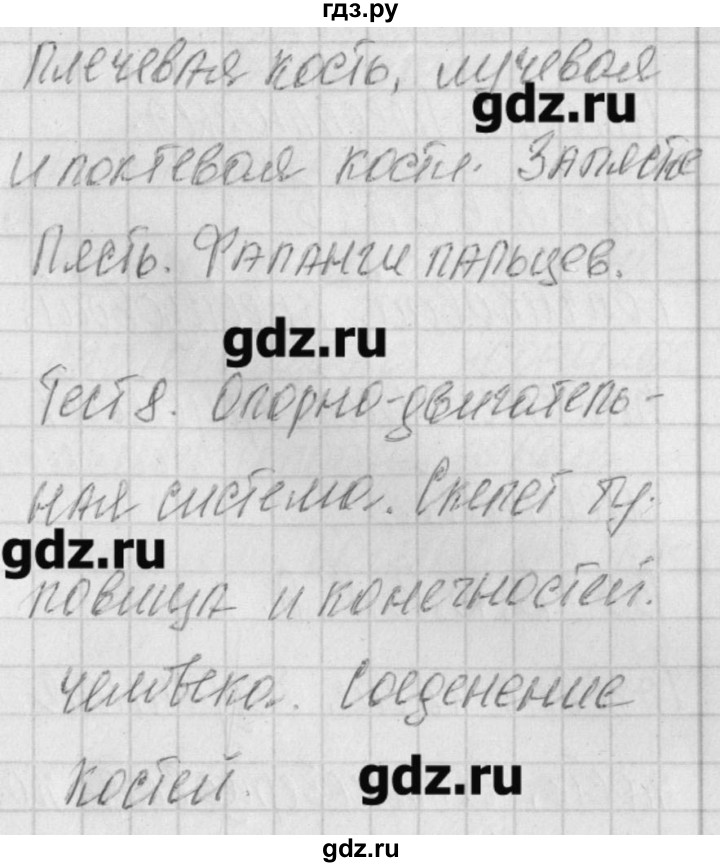 гдз.ру
плечевая кость, лучевая
gdz.ru
и локтевая кости. Запястье
Пясть. Фаланги пальцев.
gdz.ru
Тест 8. Опорно-двигатель-
ная система. Скелет ту-
gdz.ru
ловища и конечностей.
человека. Соеденение
костей.
gdz.ru
gdz.ru